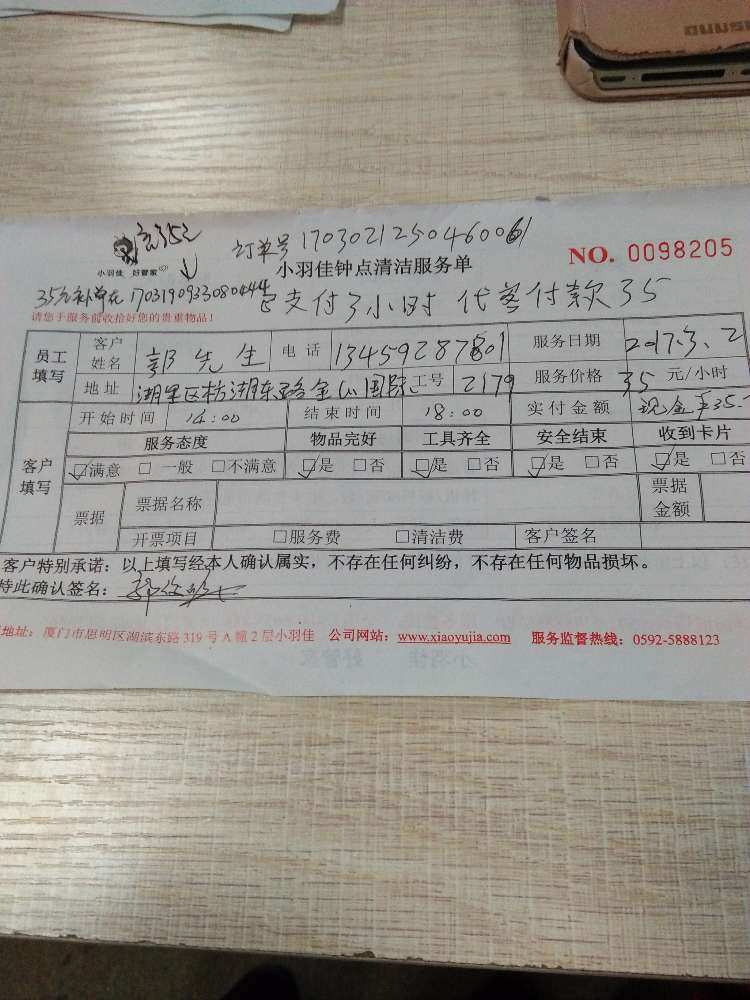 订单号 1703021250460061
小羽佳 好管家
小羽佳钟点清洁服务单
NO. 0098205
35元补单在 1703190933080444 已支付3小时 代客付款35
请您于服务前收拾好您的贵重物品!
员工填写 客户姓名 郭先生 电话 13459287801 服务日期 2017.3.2
地址 湖里区枋湖东路金山国际 工号 2179 服务价格 35 元/小时
开始时间 14:00 结束时间 18:00 实付金额 现金 35.-
客户填写 服务态度 物品完好 工具齐全 安全结束 收到卡片
☑满意 □ 一般 □不满意 ☑是 □否 ☑是 □否 ☑是 □否 ☑是 □否
票据 票据名称 票据金额
开票项目 □服务费 □清洁费 客户签名
客户特别承诺:以上填写经本人确认属实,不存在任何纠纷,不存在任何物品损坏。
特此确认签名:
地址:厦门市思明区湖滨东路 319 号 A 幢 2 层小羽佳 公司网站:www.xiaoyujia.com 服务监督热线:0592-5888123